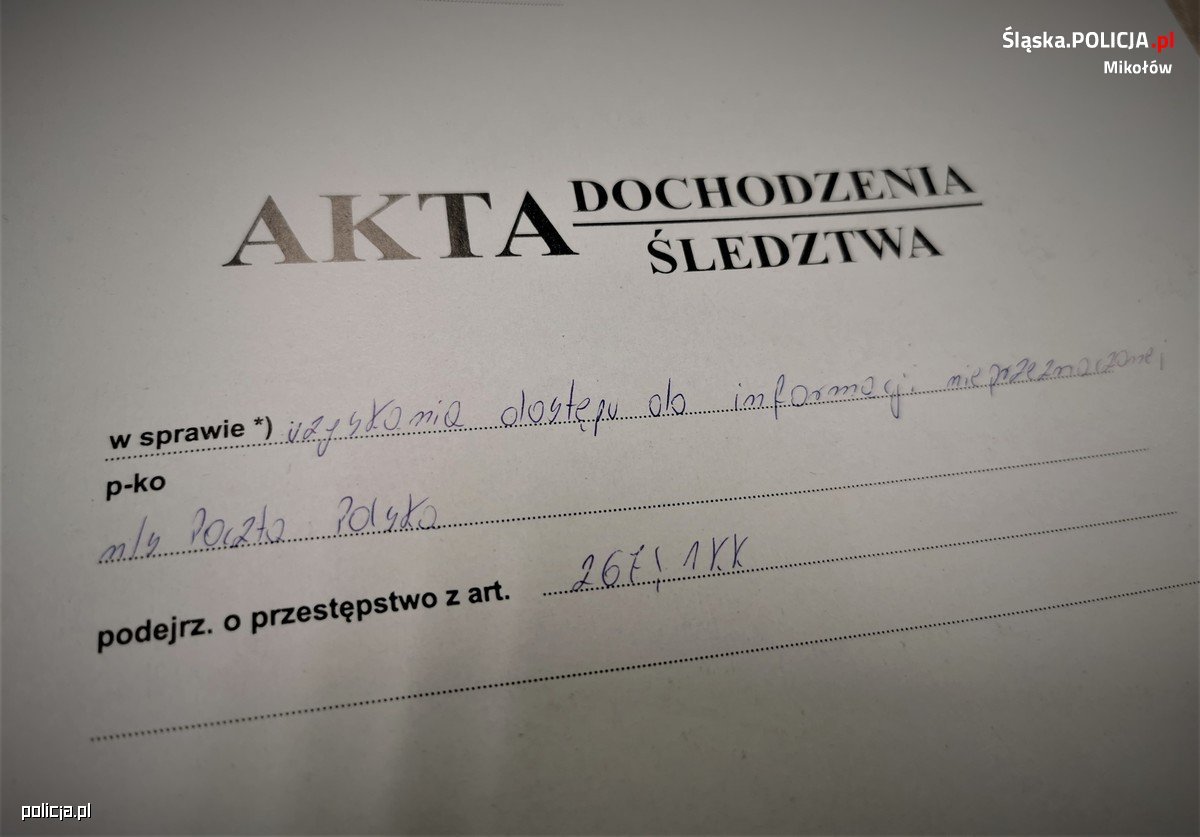 Śląska.POLICJA.pl
Mikołów
AKTA DOCHODZENIA
ŚLEDZTWA
w sprawie *) uzyskania dostępu do informacji nieprzeznaczonej
p-ko
n/s Poczta Polska
podejrz. o przestępstwo z art. 267§1KK
policja.pl